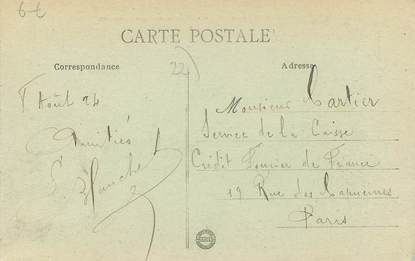 6 €
CARTE POSTALE
Correspondance
22
Adresse
Août 24
Amitiés
Blanche
Monsieur Cartier
Service de la Caisse
Crédit Foncier de France
19 Rue des Capucines
Paris